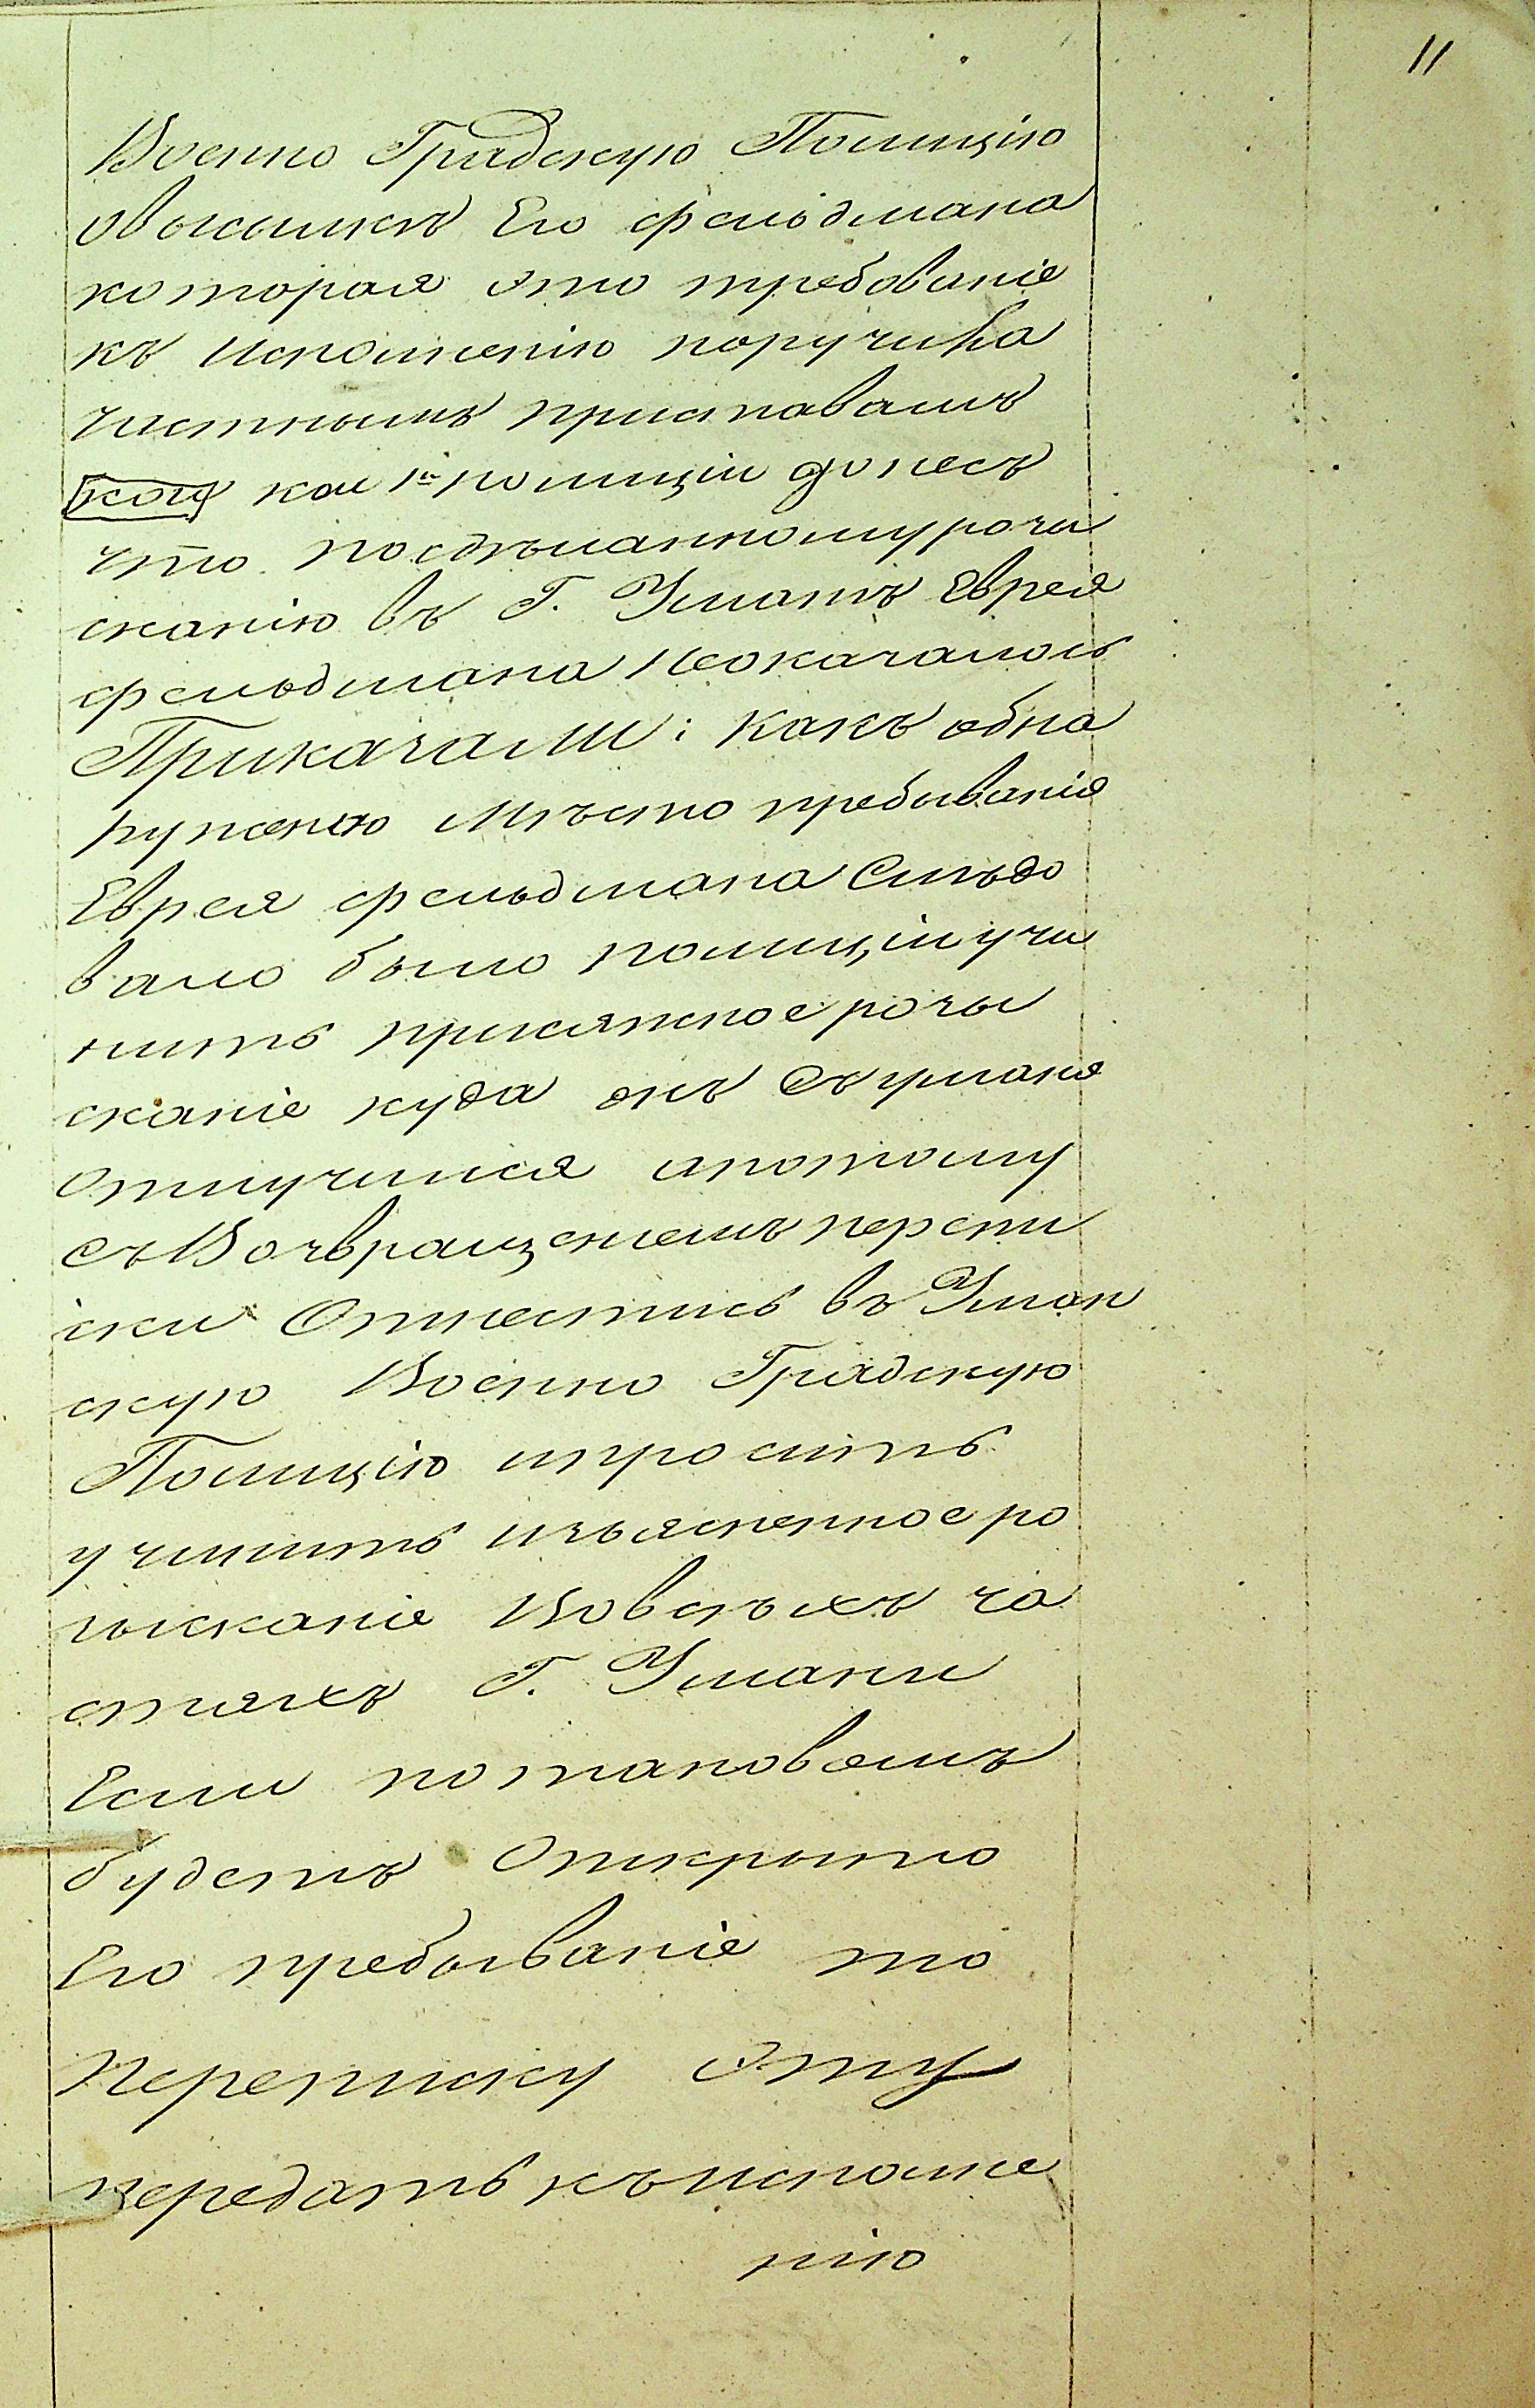 11
Военно Градскую Полицію
овысылкѣ Его фельдмана
которая это требованіе
къ исполненію поручила
частнымъ приставамъ
кои кои 1й полиціи донесъ
что посдѣланному розы
сканію въ Г. Уманѣ Еврея
фельдмана неоказалось
Приказали: какъ обна
руженію Мѣсто пребыванія
Еврея фельдмана Слѣдо
вало было полиціи учи
нить присяжное розы
сканіе куда онъ Съ уманя
отлучился ипотому
съ Возвращениемъ перепи
ски Отнестись въ Уман
скую Военно Градскую
Полицію ипросить
учинить изъясненное ро
зысканіе Вовсѣхъ ча
стяхъ Г. Умани
Если потаковомъ
будетъ Открыто
Его пребываніе то
переписку эту
передать къисполне
нію